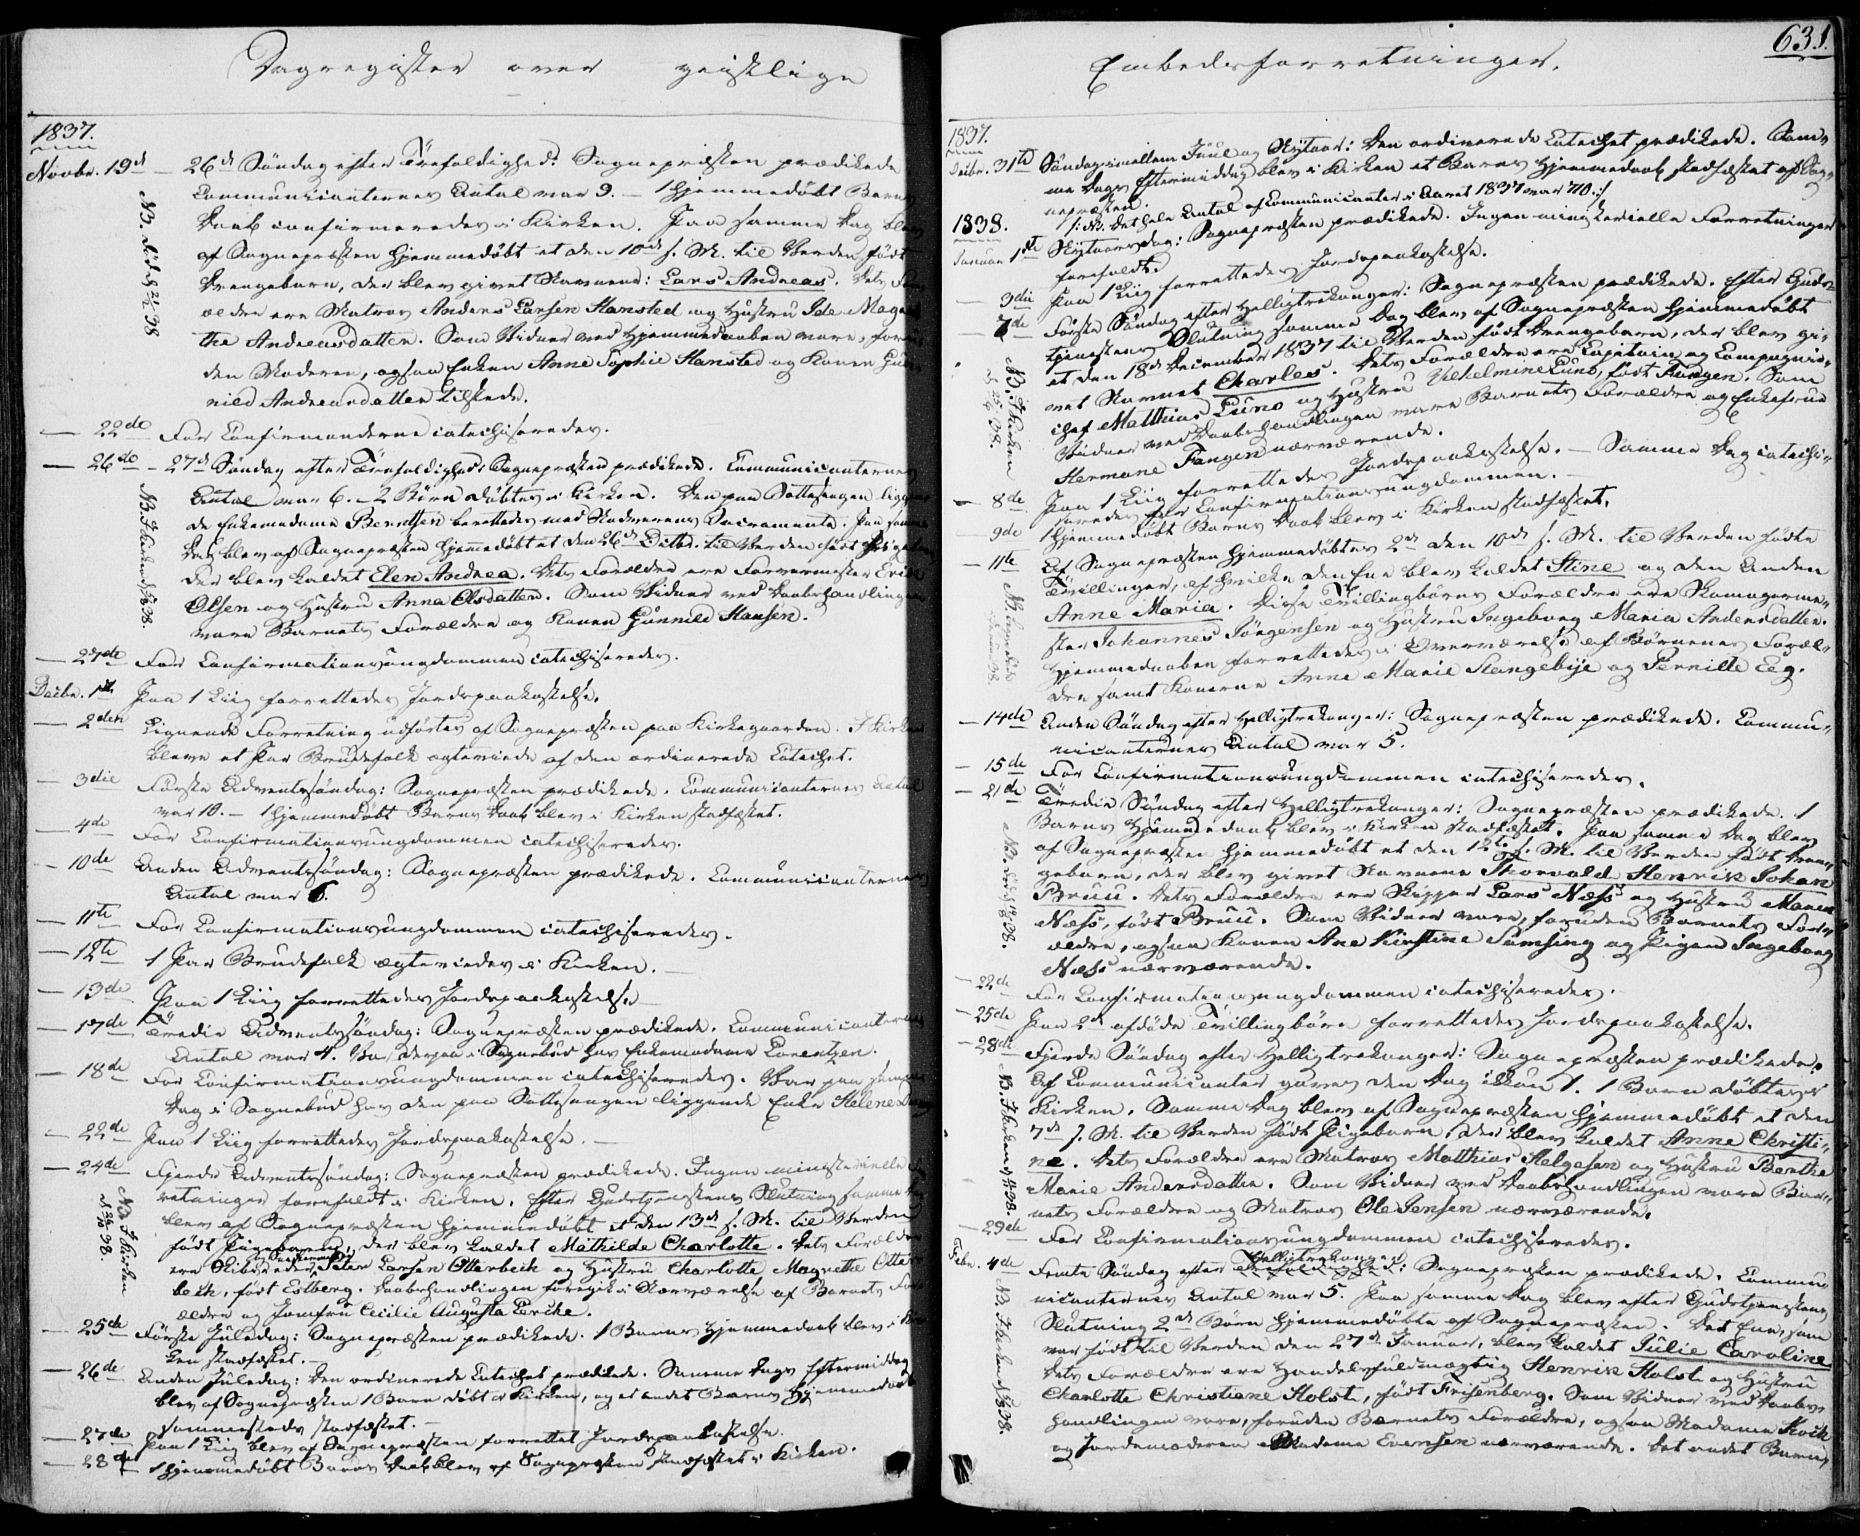 Dagregister over geistlige
1837.
Novbr. 19d — 26d Søndag efter Trefoldighed: Sognepræsten prædikede
Communicanternes Antal var 9. — 1 Hjemmedøbt Barns
Daab confirmeredes i Kirken. Paa samme Dag blev
af Sognepræsten hjemmedøbt et den 10d s. M. til Verden født
Drengebarn, der blev givet Navnene: Lars Andreas. Dets For-
ældre ere Matros Anders Larsen Hansted og Hustru Ide Magre-
the Andreasdatter. Som Vidner ved Hjemmedaaben vare, foru-
den Moderen, ogsaa Enken Anne Sophie Hansted og Konen Gun-
nild Andreasdatter tilstede.
— 22de For Confirmanderne catechiseredes.
— 26de – 27d Søndag efter Trefoldighed: Sognepræsten prædikede. Communicanternes
Antal var 6. – 2 Børn døbtes i Kirken. Den paa Sottesengen liggen-
de Enkemadame Berntsen berettedes med Nadverens Sacramente. Paa samme
Dag blev af Sognepræsten hjemmedøbt et den 26d Octbr. til Verden født Pigebarn,
der blev kaldet Elen Andrea. Dets Forældre ere Farvermester Erik
Olsen og Hustru Anna Olsdatter. Som Vidner ved Daabshandlingen
vare Barnets Forældre og Konen Gunnild Hansen.
— 27de For Confirmationsungdommen catechiseredes.
Decbr. 1ste Paa 1 Liig forrettedes Jordspaakastelse.
— 2den Lignende Forretning udførtes af Sognepræsten paa Kirkegaarden. I Kirken
bleve et Par Brudefolk ægteviede af den ordinerede Catechet.
— 3die Første Adventssøndag: Sognepræsten prædikede. Communicanternes Antal
var 10. – 1 hjemmedøbt Barns Daab blev i Kirken stadfæstet.
— 4de For Confirmationsungdommen catechiseredes.
— 10de Anden Adventssøndag: Sognepræsten prædikede. Communicanternes
Antal var 6.
— 11te For Confirmationsungdommen catechiseredes.
— 12te 1 Par Brudefolk ægteviedes i Kirken.
— 13de Paa 1 Liig forrettedes Jordspaakastelse
— 17de Tredie Adventssøndag: Sognepræsten prædikede. Communicanternes
Antal var 4. Var derpaa i Sognebud hos Enkemadame Lorentzen.
— 18de For Confirmationsungdommen catechiseredes. Var paa samme
Dag i Sognebud hos den paa Sottesengen liggende Enke Helene
— 22de Paa 1 Liig forrettedes Jordspaakastelse. —
— 24de Fjerde Adventssøndag: Sognepræsten prædikede. Ingen ministerielle For-
retninger forefaldt i Kirken. Efter Gudstjenestens Slutning samme Dag
blev af Sognepræsten hjemmedøbt et den 13d s. M. til Verden
født Pigebarn, der blev kaldet Mathilde Charlotte. Dets Forældre
ere Skibstømmermand Peter Larsen Otterbeck og Hustru Charlotte Magrethe Otter-
beck, født Estberg. Daabshandlingen foregik i Nærværelse af Barnets For-
ældre og Jomfru Cecilie Augusta Lercke.
— 25de Første Juledag: Sognepræsten prædikede. 1 Barns Hjemmedaab blev i Kir-
ken stadfæstet. —
— 26de Anden Juledag: Den ordinerede Catechet prædikede. Samme Dags Eftermiddag
blev af Sognepræsten 1 Barn døbt i Kirken, og et andet Barns Hjemmedaab
sammesteds stadfæstet. —
— 27de Paa 1 Liig blev af Sognepræsten forrettet Jordspaakastelse.
— 28de 1 hjemmedøbt Barns Daab blev af Sognepræsten stadfæstet i Kirken.
NB. I Kirken
d. 26 38.
Embedsforretninger.
631.
1837.
Decbr. 31te Søndag imellem Juul og Nytaar: Den ordinerede Catechet prædikede. Sam-
me Dags Eftermiddag blev i Kirken et Barns Hjemmedaab stadfæstet af Sog-
nepræsten.
/: NB. Det hele Antal af Communicanter i Aaret 1837 var 710. :/
1838.
Januar 1ste Nytaarsdag: Sognepræsten prædikede. Ingen ministerielle Forretninger
forefaldt.
— 3die Paa 1 Liig forrettedes Jordspaakastelse.
— 7de Første Søndag efter Helligtrekonger: Sognepræsten prædikede. Efter Guds-
tjenestens Slutning samme Dag blev af Sognepræsten hjemmedøbt
et den 18d December 1837 til Verden født Drengebarn, der blev gi-
vet Navnet Charles. Dets Forældre ere Capitain og Compagnie-
chef Matthias Lund og Hustru Vilhelmine Lund, født Fangen. Som
Vidner ved Daabshandlingen vare Barnets Forældre og Enkefrue
Hermane Fangen nærværende.
— 8de Paa 1 Liig forrettedes Jordspaakastelse. — Samme Dag catechi-
seredes for Confirmationsungdommen. —
— 9de 1 hjemmedøbt Barns Daab blev i Kirken stadfæstet.
— 11te Af Sognepræsten hjemmedøbtes 2de den 10d s. M. til Verden fødte
Tvillinger, af hvilke den Ene blev kaldet Stine og den Anden
Anne Maria. Disse Tvillingbørns Forældre ere Skomagerme-
ster Johannes Jørgensen og Hustru Ingeborg Maria Andersdatter.
Hjemmedaaben forrettedes i Overværelse af Børnenes Foræl-
dre samt Konerne Anne Marie Stengebye og Pernille Eeg.
— 14de Anden Søndag efter Helligtrekonger: Sognepræsten prædikede. Commu-
nicanternes Antal var 5.
— 15de For Confirmationsungdommen catechiseredes.
— 21de Tredie Søndag efter Helligtrekonger: Sognepræsten prædikede. 1
Barns Hjemmedaab blev i Kirken stadfæstet. Paa samme Dag blev
af Sognepræsten hjemmedøbt et den 12te s. M. til Verden født Dren-
gebarn, der blev givet Navnene Thorvald Henrik Johan
Bruu. Dets Forældre ere Skipper Lars Næss og Hustru Maren
Næss, født Bruu. Som Vidner vare, foruden Barnets For-
ældre, ogsaa Konen Ane Kirstine Sumsing og Pigen Ingeborg
Næss nærværende.
— 22de For Confirmationsungdommen catechiseredes.
— 25de Paa 2de afdøde Tvillingbørn forrettedes Jordspaakastelse.
— 28de Fjerde Søndag efter Helligtrekonger: Sognepræsten prædikede.
Af Communicanter gaves den Dag ikkun 1. 1 Barn døbtes i
Kirken. Samme Dag blev af Sognepræsten hjemmedøbt et den
7d s. M. til Verden født Pigebarn, der blev kaldet Anne Christi-
ne. Dets Forældre ere Matros Matthias Helgesen og Hustru Berthe
Marie Andersdatter. Som Vidner ved Daabshandlingen vare Bar-
nets Forældre og Matros Ole Jensen nærværende.
— 29de For Confirmationsungdommen catechiseredes.
Febr. 4de Femte Søndag efter Helligtrekonger: Sognepræsten prædikede. Commu-
nicanternes Antal var 5. Paa samme Dag blev efter Gudstjenestens
Slutning 2de Børn hjemmedøbte af Sognepræsten. Det Ene, som
var født til Verden den 27de Januar, blev kaldet Julie Caroline
Dets Forældre ere Handelsfuldmægtig Henrik Holst og Hustru
Charlotte Christiane Holst, født Frisenberg. Som Vidner ved Daabs-
handlingen vare, foruden Barnets Forældre, ogsaa Madame Koch
og Jordemoderen Madame Evensen nærværende. Det andet Barn,